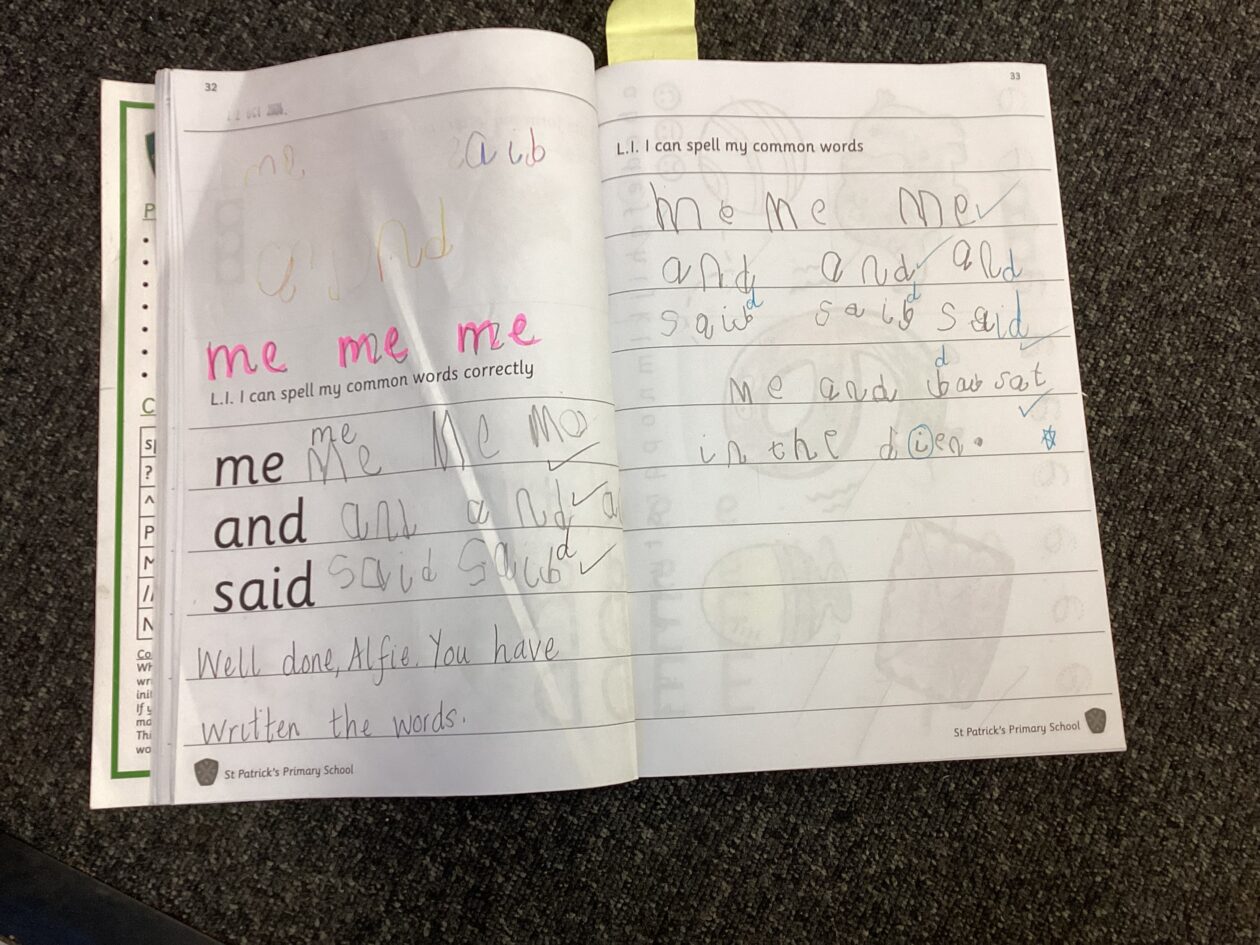 32
me saib
and
me me me
L.I. I can spell my common words correctly
me me me me mo
and and and a
said said saib d
Well done, Alfie. You have
written the words.
St Patrick's Primary School
33
L.I. I can spell my common words
me me me
and and and
saib d saib d said
me and d bab sat
in the dien.
St Patrick's Primary School
P
C
S
?
^
P
M
//
N
Co
Wh
wr
init
If y
ma
Thi
wo